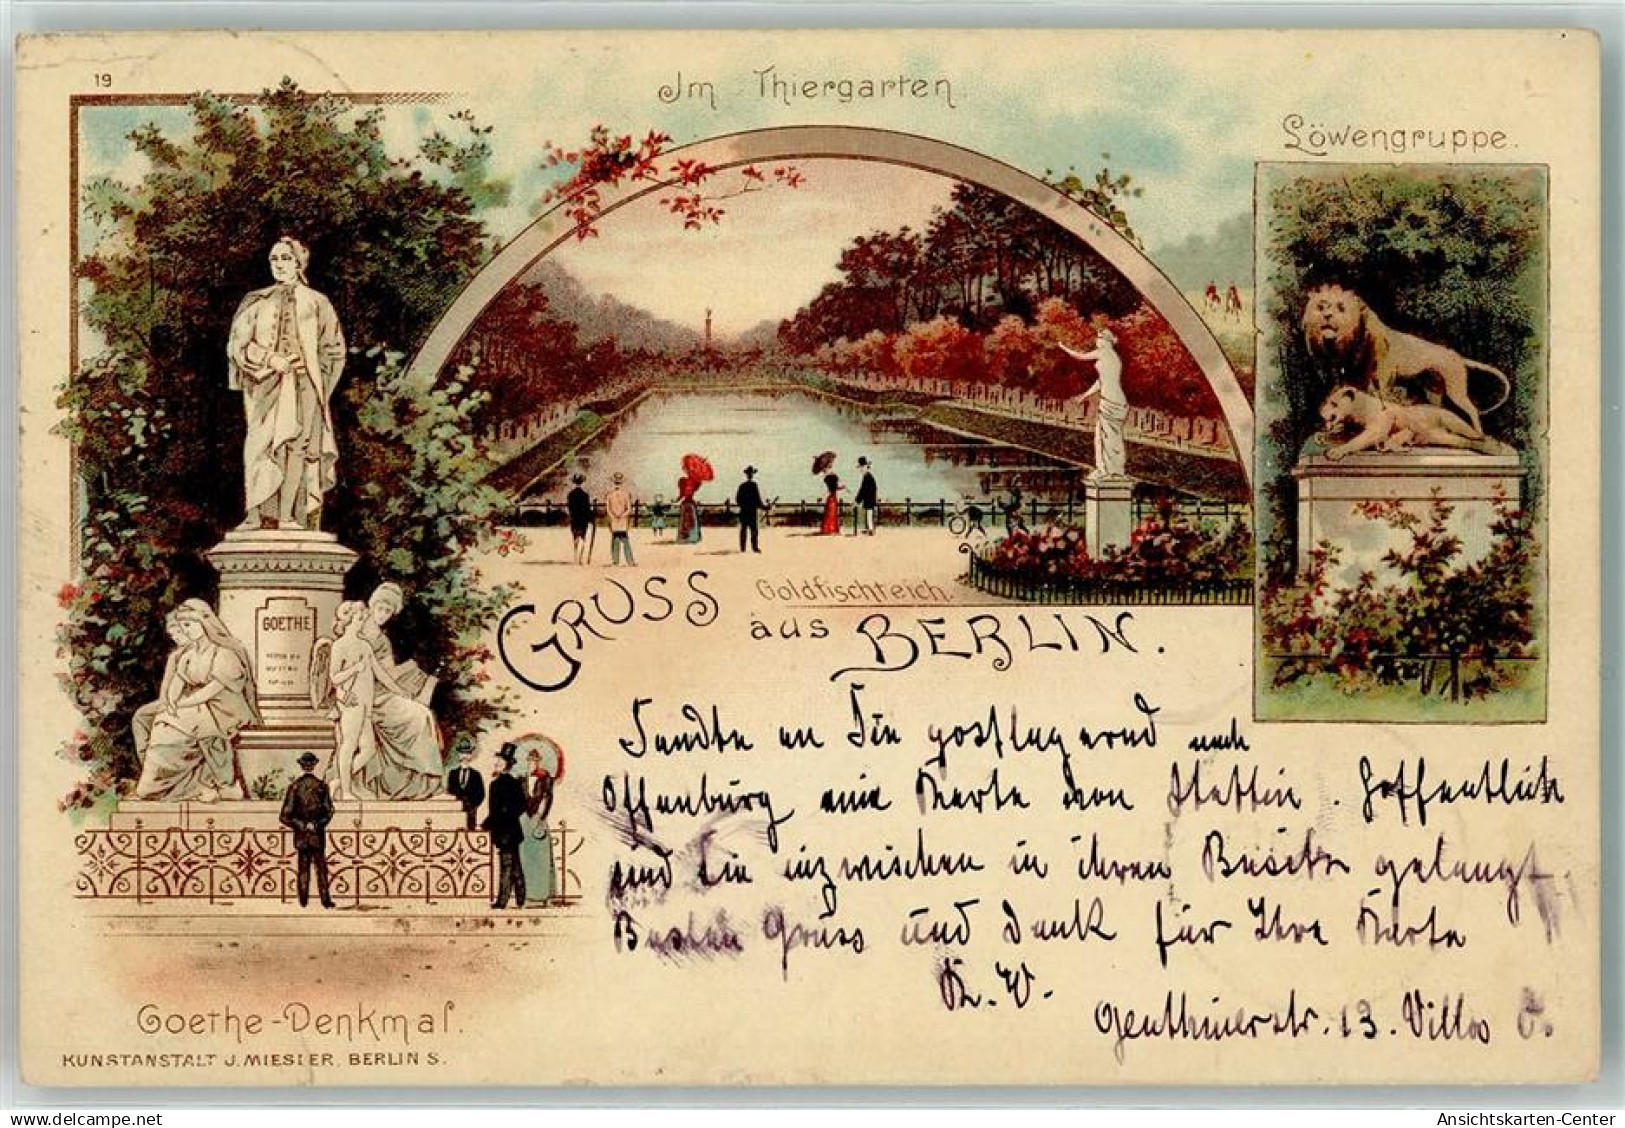 19
Im Thiergarten.
Löwengruppe.
GOETHE
Goldfischteich.
GRUSS aus BERLIN.
Sandte an Sie postlagernd nach
Offenburg eine Karte von Stettin. Hoffentlich
sind Sie inzwischen in ihren Besitz gelangt.
Besten Gruss und Dank für Ihre Karte
K. W.
Genthinerstr. 13. Villa
Goethe-Denkmal.
KUNSTANSTALT J. MIESLER, BERLIN S.
Ansichtskarten-Center